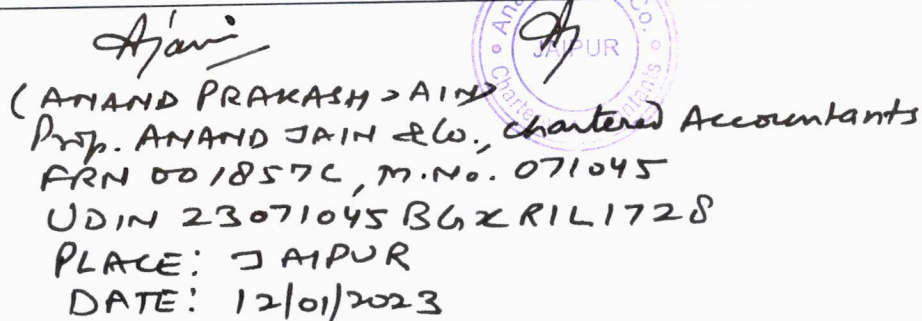 Ajain
Ana Co.
JAIPUR
Chartered Accountants
(ANAND PRAKASH JAIN)
Prop. ANAND JAIN & Co., Chartered Accountants
FRN 001857C, M.No. 071045
UDIN 23071045BGXRIL1728
PLACE: JAIPUR
DATE: 12/01/2023